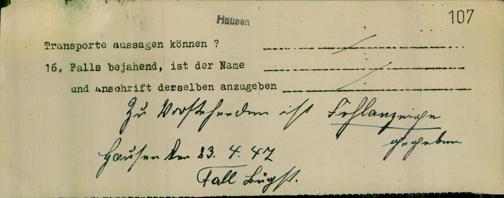 Hausen
107
Transporte aussagen können ?
16. Falls bejahend, ist der Name
und anschrift derselben anzugeben
Zu Vorstehenden ist Fehlanzeige
gegeben
Hausen den 23. 4. 47